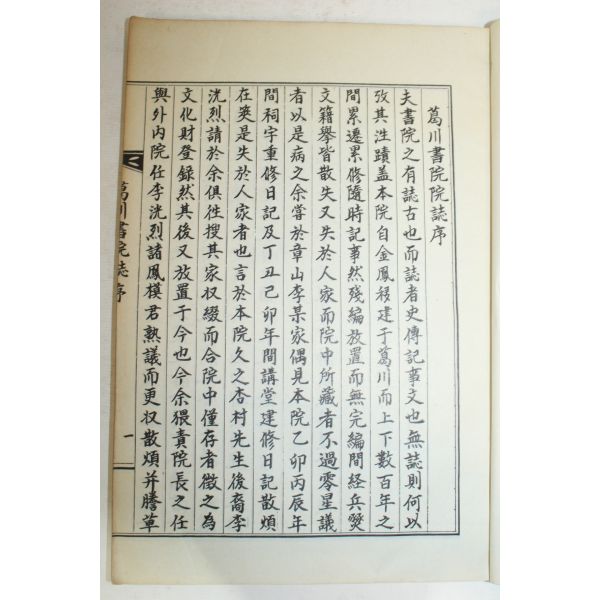 葛川書院院誌序
夫書院之有誌古也而誌者史傳記事文也無誌則何以
攷其徃蹟盖本院自金鳳移建于葛川而上下數百年之
間累遷累修隨時記事然殘編放置而無完編間経兵燹
文籍擧皆散失又失於人家而院中所藏者不過零星議
者以是病之余嘗於章山李某家偶見本院乙卯丙辰年
間祠宇重修日記及丁丑己卯年間講堂建修日記散頒
在篋是失於人家者也言於本院久之杏村先生後裔李
洸烈請於余俱徃搜其家収綴而合院中僅存者徴之為
文化財登録然其後又放置于今也今余猥責院長之任
與外内院任李洸烈諸鳳模君熟議而更収散頒并謄草
葛川書院誌序
一